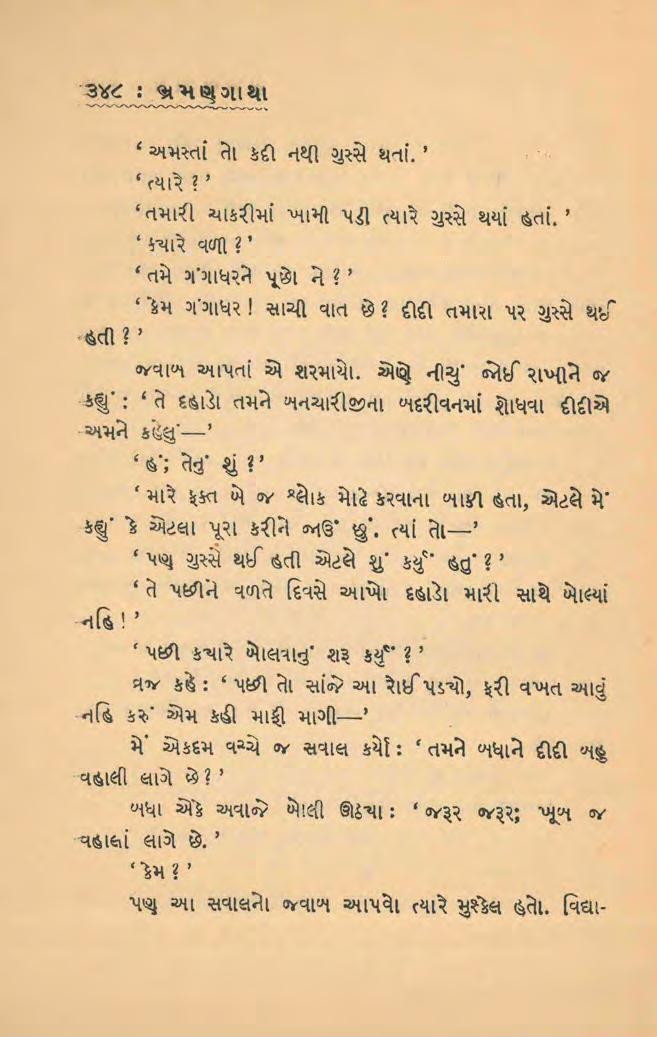 ૩૪૮ : ભ્રમણગાથા
‘અમસ્તાં તો કદી નથી ગુસ્સે થતાં.’
‘ત્યારે ?’
‘તમારી ચાકરીમાં ખામી પડી ત્યારે ગુસ્સે થયાં હતાં.’
‘ક્યારે વળી ?’
‘તમે ગંગાધરને પૂછો ને ?’
‘કેમ ગંગાધર ! સાચી વાત છે ? દીદી તમારા પર ગુસ્સે થઈ
હતી ?’
જવાબ આપતાં એ શરમાયો. એણે નીચું જોઈ રાખીને જ
કહ્યું : ‘તે દહાડો તમને બનચારીજીના બદરીવનમાં શોધવા દીદીએ
અમને કહેલું—’
‘હં; તેનું શું ?’
‘મારે ફક્ત બે જ શ્લોક મોઢે કરવાના બાકી હતા, એટલે મેં
કહ્યું કે એટલા પૂરા કરીને જાઉં છું. ત્યાં તો—’
‘પણ ગુસ્સે થઈ હતી એટલે શું કર્યું હતું ?’
‘તે પછીને વળતે દિવસે આખો દહાડો મારી સાથે બોલ્યાં
નહિ !’
‘પછી ક્યારે બોલવાનું શરૂ કર્યું ?’
વ્રજ કહે : ‘પછી તો સાંજે આ રોઈ પડ્યો, ફરી વખત આવું
નહિ કરું એમ કહી માફી માગી—’
મેં એકદમ વચ્ચે જ સવાલ કર્યો : ‘તમને બધાને દીદી બહુ
વહાલી લાગે છે ?’
બધા એકે અવાજે બોલી ઊઠ્યા : ‘જરૂર જરૂર; ખૂબ જ
વહાલાં લાગે છે.’
‘કેમ ?’
પણ આ સવાલનો જવાબ આપવો ત્યારે મુશ્કેલ હતો. વિદ્યા-